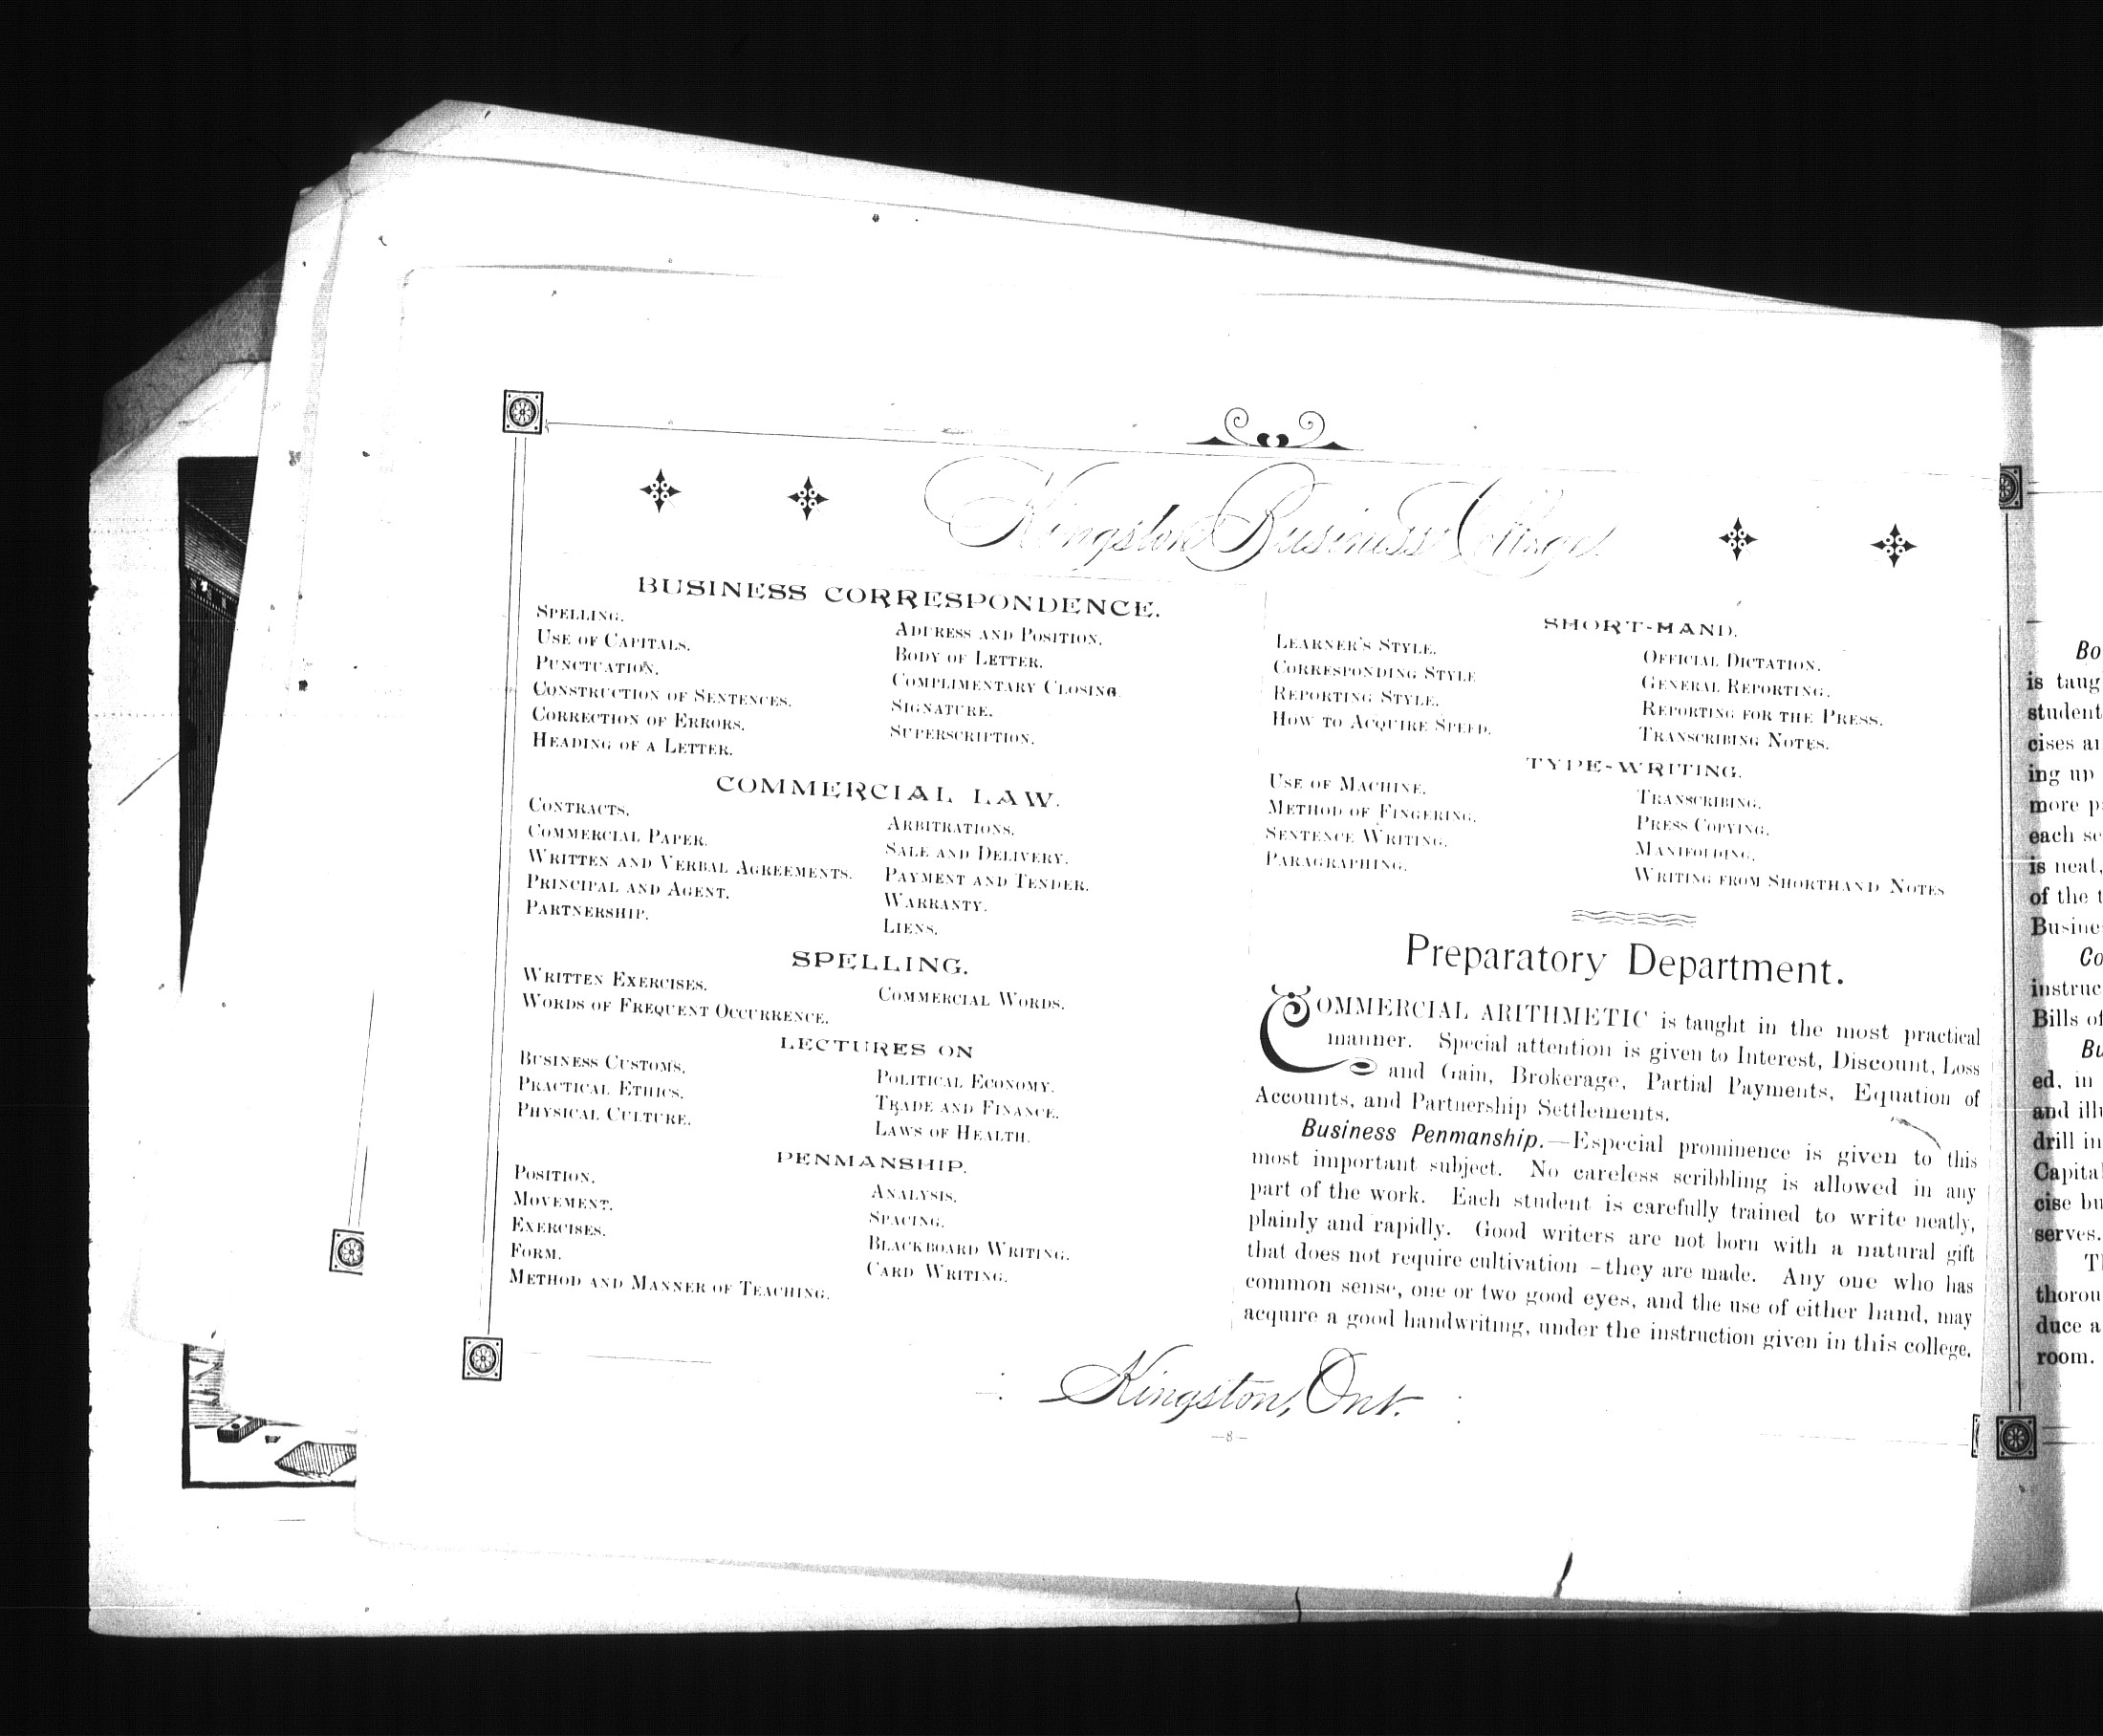 Kingston Business College.
BUSINESS CORRESPONDENCE.
SPELLING.
USE OF CAPITALS.
PUNCTUATION.
CONSTRUCTION OF SENTENCES.
CORRECTION OF ERRORS.
HEADING OF A LETTER.
ADDRESS AND POSITION.
BODY OF LETTER.
COMPLIMENTARY CLOSING.
SIGNATURE.
SUPERSCRIPTION.
COMMERCIAL LAW.
CONTRACTS.
COMMERCIAL PAPER.
WRITTEN AND VERBAL AGREEMENTS.
PRINCIPAL AND AGENT.
PARTNERSHIP.
ARBITRATIONS.
SALE AND DELIVERY.
PAYMENT AND TENDER.
WARRANTY.
LIENS.
SPELLING.
WRITTEN EXERCISES.
WORDS OF FREQUENT OCCURRENCE.
COMMERCIAL WORDS.
LECTURES ON
BUSINESS CUSTOMS.
PRACTICAL ETHICS.
PHYSICAL CULTURE.
POLITICAL ECONOMY.
TRADE AND FINANCE.
LAWS OF HEALTH.
PENMANSHIP.
POSITION.
MOVEMENT.
EXERCISES.
FORM.
METHOD AND MANNER OF TEACHING.
ANALYSIS.
SPACING.
BLACKBOARD WRITING.
CARD WRITING.
SHORT-HAND.
LEARNER'S STYLE.
CORRESPONDING STYLE
REPORTING STYLE.
HOW TO ACQUIRE SPEED.
OFFICIAL DICTATION.
GENERAL REPORTING.
REPORTING FOR THE PRESS.
TRANSCRIBING NOTES.
TYPE-WRITING.
USE OF MACHINE.
METHOD OF FINGERING.
SENTENCE WRITING.
PARAGRAPHING.
TRANSCRIBING.
PRESS COPYING.
MANIFOLDING.
WRITING FROM SHORTHAND NOTES
Preparatory Department.
COMMERCIAL ARITHMETIC is taught in the most practical
manner. Special attention is given to Interest, Discount, Loss
and Gain, Brokerage, Partial Payments, Equation of
Accounts, and Partnership Settlements.
Business Penmanship.—Especial prominence is given to this
most important subject. No careless scribbling is allowed in any
part of the work. Each student is carefully trained to write neatly,
plainly and rapidly. Good writers are not born with a natural gift
that does not require cultivation –they are made. Any one who has
common sense, one or two good eyes, and the use of either hand, may
acquire a good handwriting, under the instruction given in this college.
Kingston, Ont.
—8—
is
of the
ed, in
drill in
room.